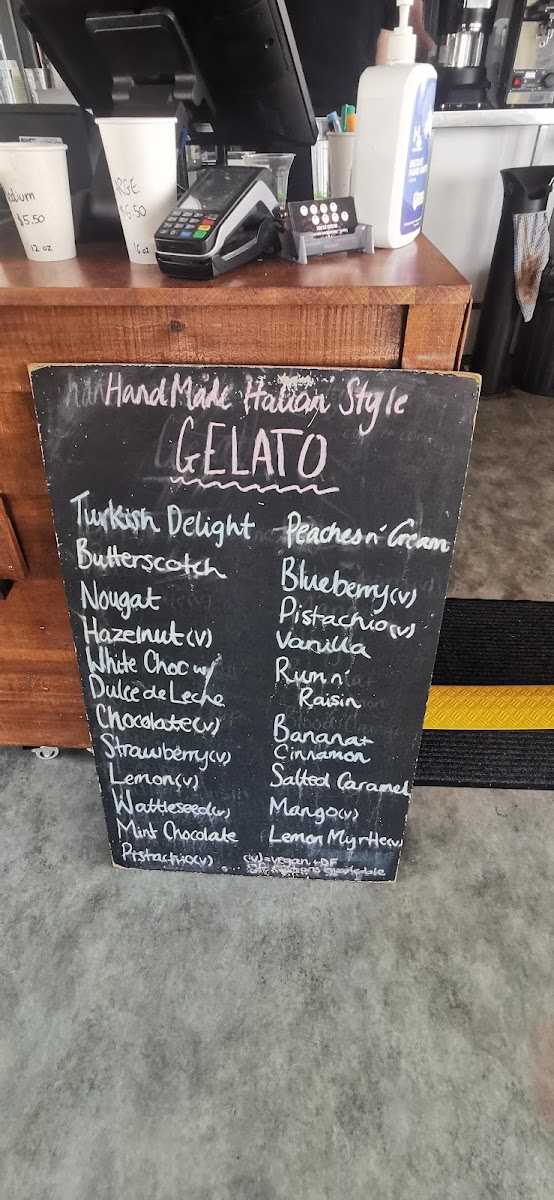 edium
$5.50
12 oz
ARGE
$6.50
16 oz
Hand Made Italian Style
GELATO
Turkish Delight
Butterscotch
Nougat
Hazelnut (v)
White Choc w/
Dulce de Leche
Chocolate (v)
Strawberry (v)
Lemon (v)
Wattleseed (v)
Mint Chocolate
Pistachio (v)
Peaches n' Cream
Blueberry (v)
Pistachio (v)
Vanilla
Rum n'
Raisin
Banana +
Cinnamon
Salted Caramel
Mango (v)
Lemon Myrtle (v)
(v) = vegan + DF